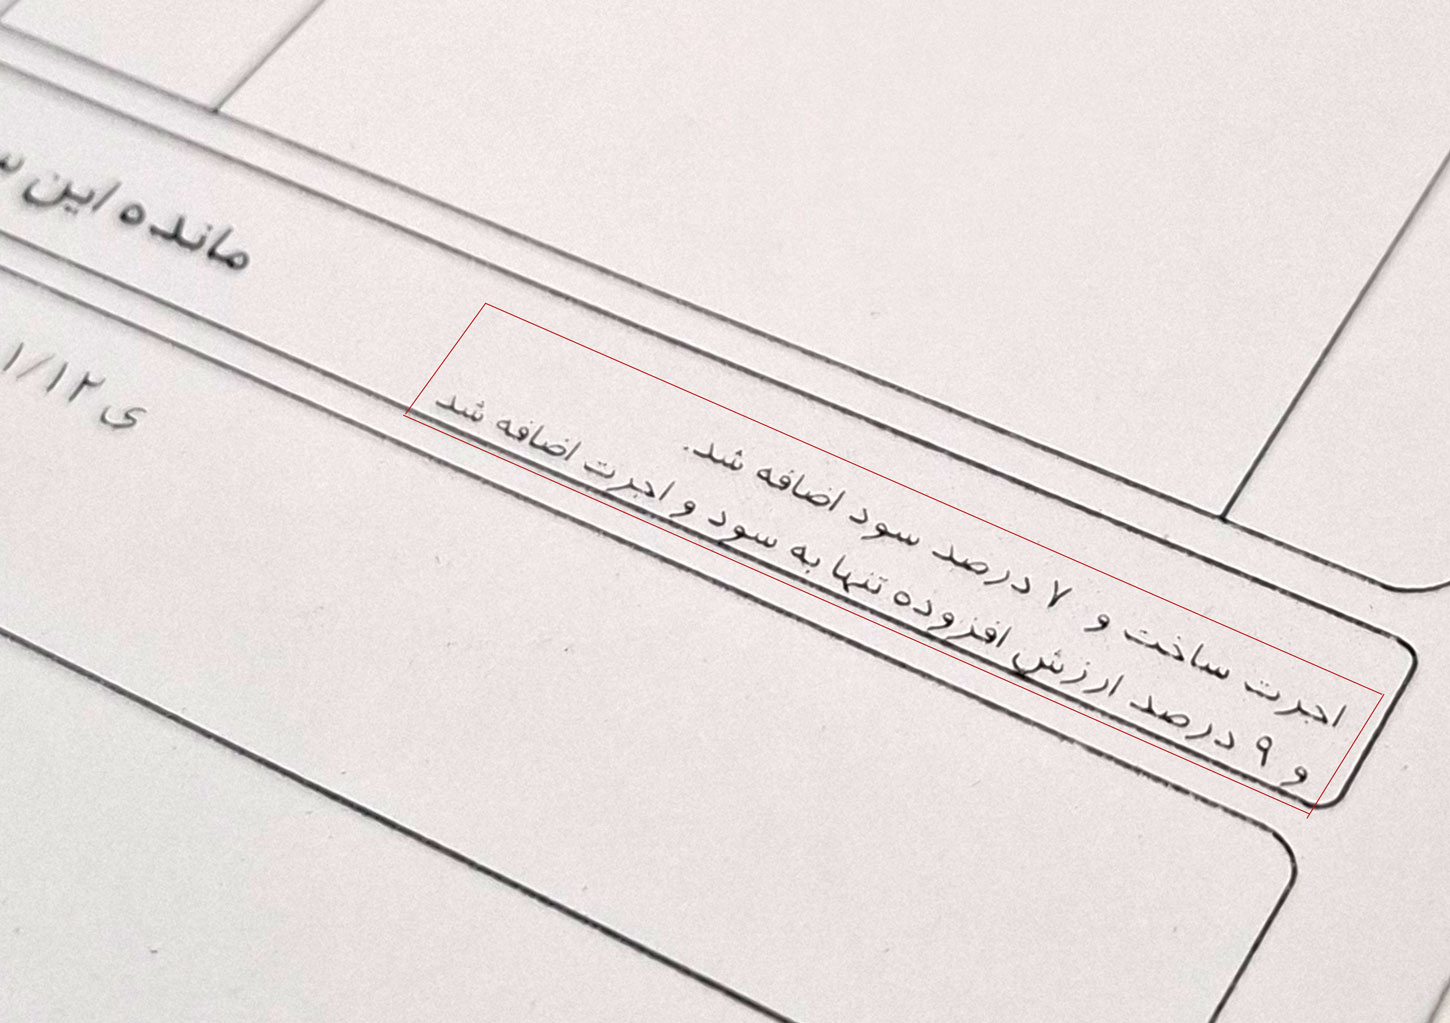 مانده این
اجرت ساخت و ۷ درصد سود اضافه شد.
و ۹ درصد ارزش افزوده تنها به سود و اجرت اضافه شد
ی ۱/۱۲